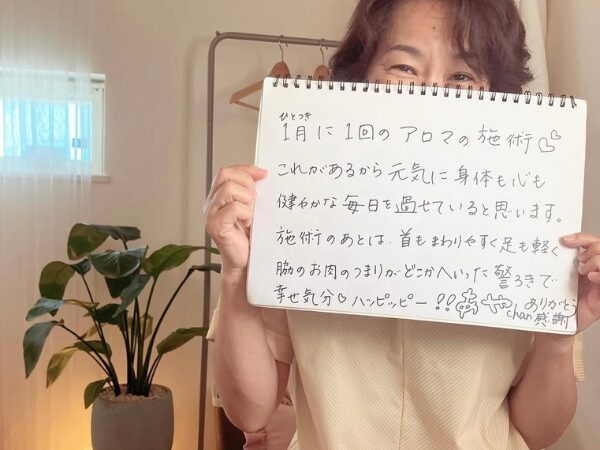 ひとつき
1月に1回のアロマの施術♡♡
これがあるから元気に身体も心も
健やかな毎日を過せていると思います。
施術のあとは、首もまわりやすく足も軽く
脇のお肉のつまりがどこかへいった驚ろきで
幸せ気分♡ハッピッピー!!
ありがとう
chan感謝